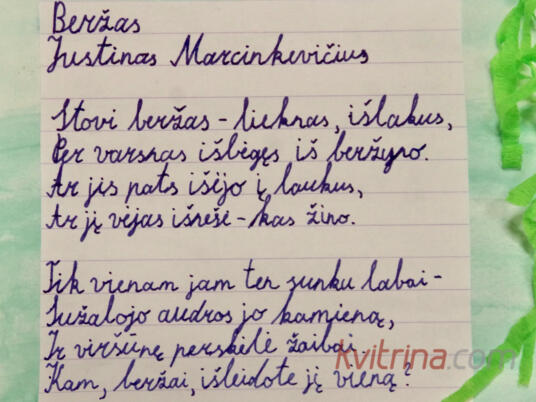 Beržas
Justinas Marcinkevičius
Stovi beržas - lieknas, išlakus,
Per varsnas išbėgęs iš beržyno.
Ar jis pats išėjo į laukus,
Ar jį vėjas išnešė - kas žino.
Tik vienam jam ten sunku labai -
Sužalojo audros jo kamieną,
Ir viršūnę perskėlė žaibai.
Kam, beržai, išleidote jį vieną?
Kvitrina.com